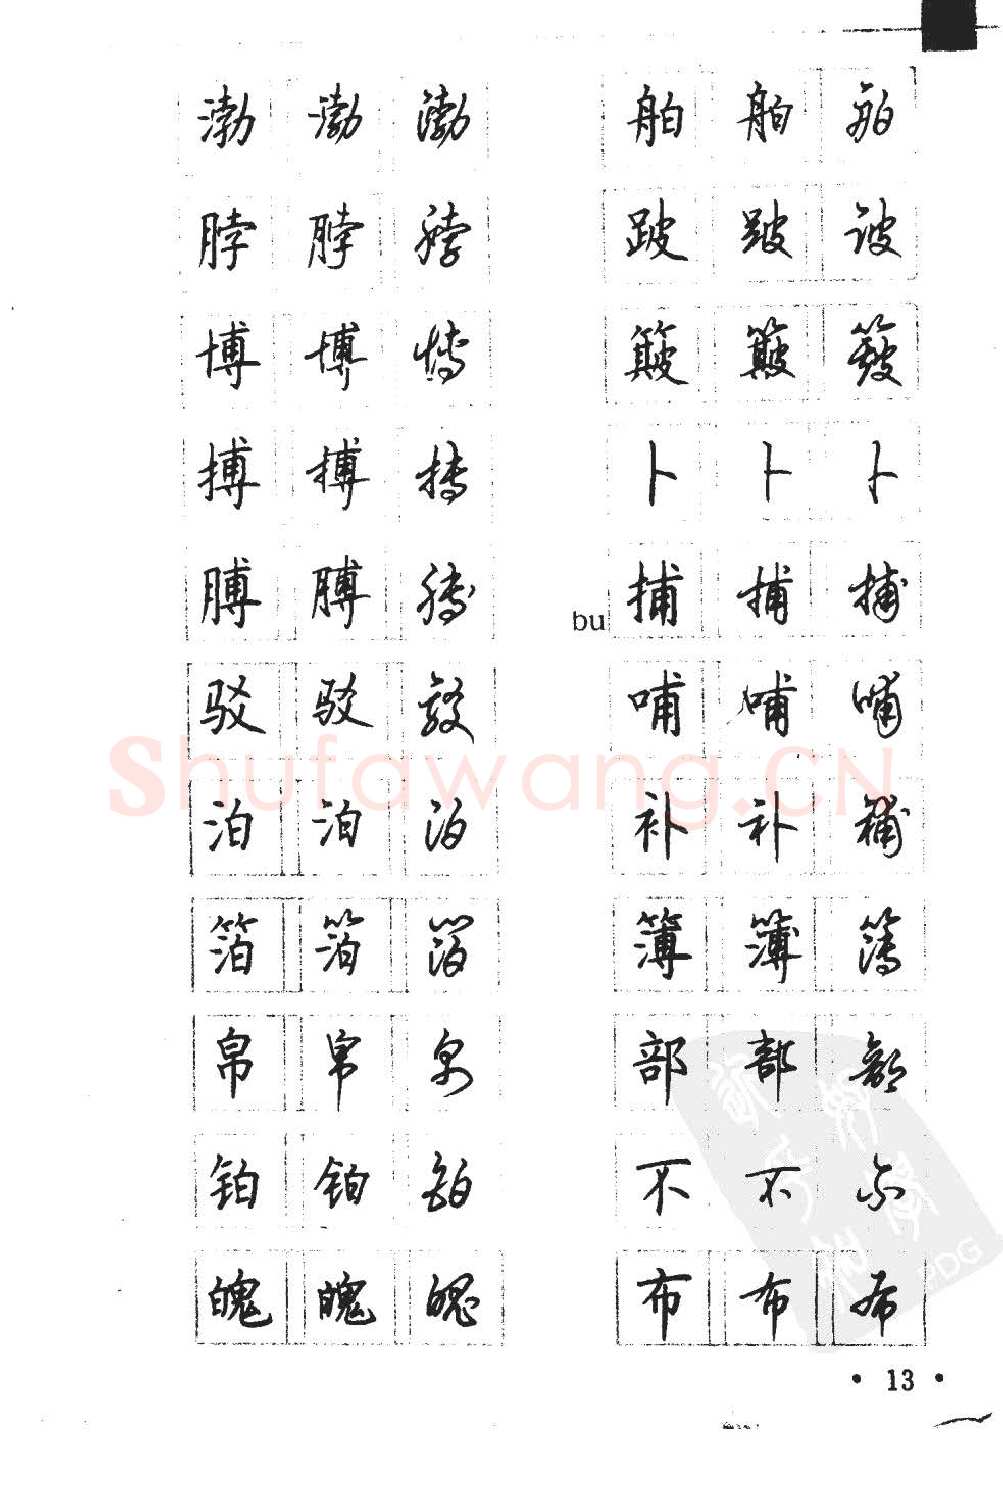 渤 渤 渤
脖 脖 脖
博 博 博
搏 搏 搏
膊 膊 膊
驳 驳 驳
泊 泊 泊
箔 箔 箔
帛 帛 帛
铂 铂 铂
魄 魄 魄
舶 舶 舶
跛 跛 跛
簸 簸 簸
卜 卜 卜
bu 捕 捕 捕
哺 哺 哺
补 补 補
簿 簿 簿
部 部 部
不 不 不
布 布 布
Shufawang.CN
• 13 •